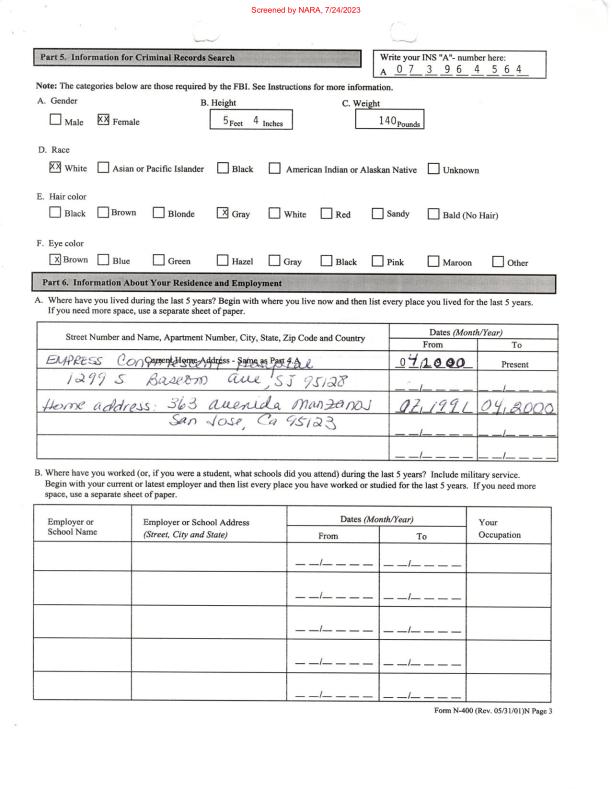 Screened by NARA, 7/24/2023
Part 5. Information for Criminal Records Search
Write your INS "A"- number here:
A 0 7 3 9 6 4 5 6 4
Note: The categories below are those required by the FBI. See Instructions for more information.
A. Gender B. Height C. Weight
Male XX Female 5 Feet 4 Inches 140 Pounds
D. Race
XX White Asian or Pacific Islander Black American Indian or Alaskan Native Unknown
E. Hair color
Black Brown Blonde X Gray White Red Sandy Bald (No Hair)
F. Eye color
X Brown Blue Green Hazel Gray Black Pink Maroon Other
Part 6. Information About Your Residence and Employment
A. Where have you lived during the last 5 years? Begin with where you live now and then list every place you lived for the last 5 years.
If you need more space, use a separate sheet of paper.
Street Number and Name, Apartment Number, City, State, Zip Code and Country
Dates (Month/Year)
From To
Current Home Address - Same as Part 4.A
EMPRESS Hospital 04/2000 Present
1299 S. Bascom ave, SJ 95128
Home address: 363 avenida Manzanos 07,1991 04,2000
San Jose, Ca 95123
B. Where have you worked (or, if you were a student, what schools did you attend) during the last 5 years? Include military service.
Begin with your current or latest employer and then list every place you have worked or studied for the last 5 years. If you need more
space, use a separate sheet of paper.
Employer or
School Name
Employer or School Address
(Street, City and State)
Dates (Month/Year)
From To
Your
Occupation
Form N-400 (Rev. 05/31/01)N Page 3